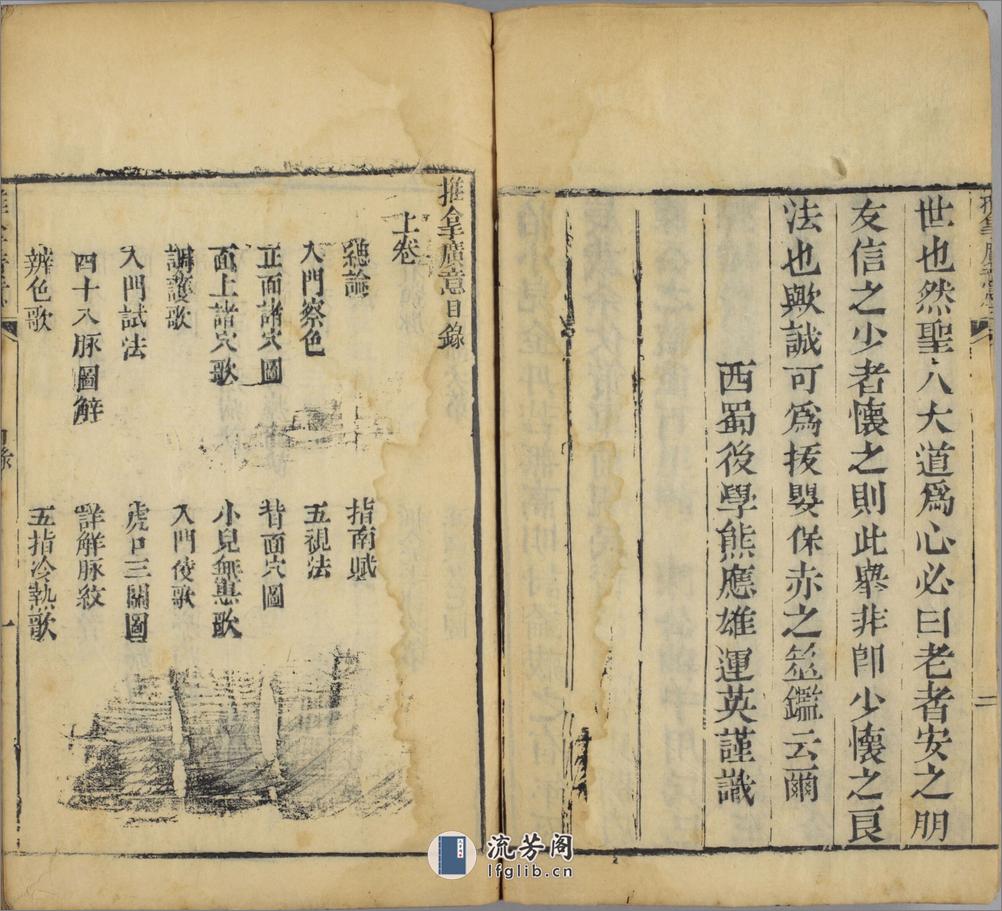 世也然聖人大道爲心必曰老者安之朋
友信之少者懷之則此舉非卽少懷之良
法也歟誠可爲拔嬰保赤之筮鑑云爾
西蜀後學熊應雄運英謹識
二
推拿廣意目錄
上卷
總論 指南賦
入門察色 五視法
正面諸穴圖 背面穴圖
面上諸穴歌 小兒無患歌
調護歌 入門侯歌
入門試法 虎口三關圖
四十八脉圖觧 詳解脉紋
辨色歌 五指冷熱歌
一
流芳阁
lfglib.cn